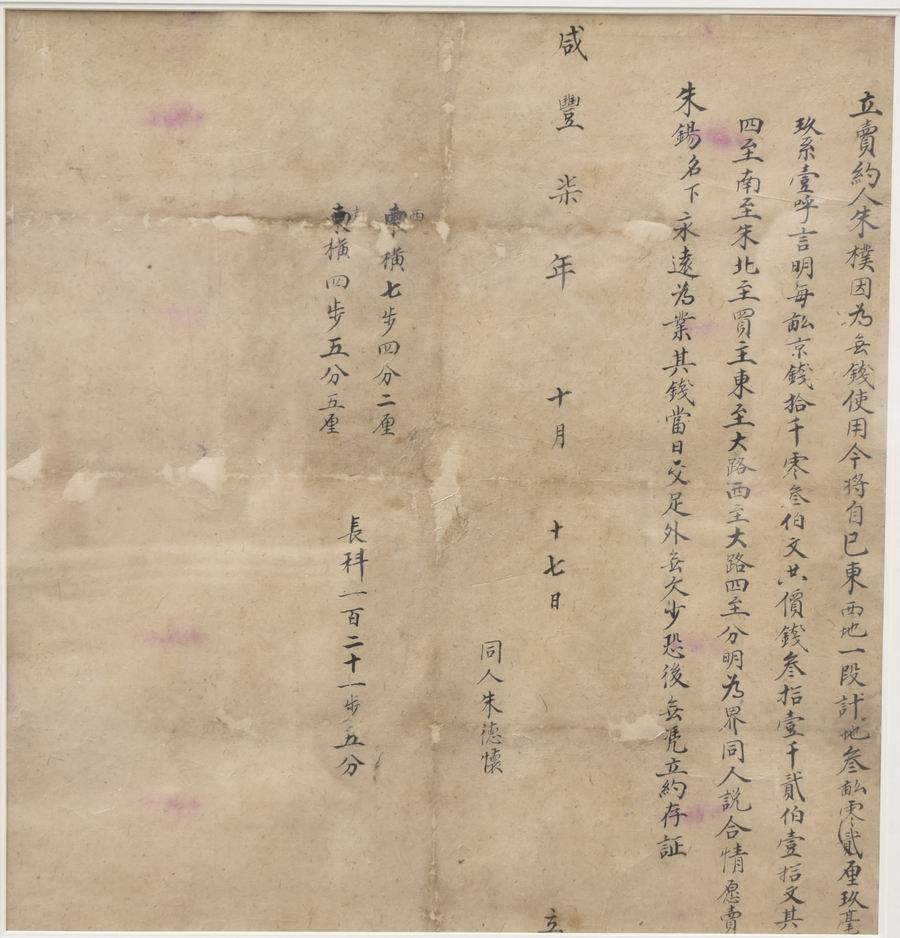 立賣約人朱樸因為無錢使用今將自己東西地一段計地叁畝零貳厘玖毫
玖系壹呼言明每畝京錢拾千零叁伯文共價錢叁拾壹千貳伯壹拾文其
四至南至朱北至買主東至大路西至大路四至分明為界同人説合情愿賣
朱錫名下永遠為業其錢當日交足外無欠少恐後無凴立約存証
咸豐柒年 十月 十七日 立
同人朱德懷
橫七步四分二厘
橫四步五分五厘
長科一百二十一步五分